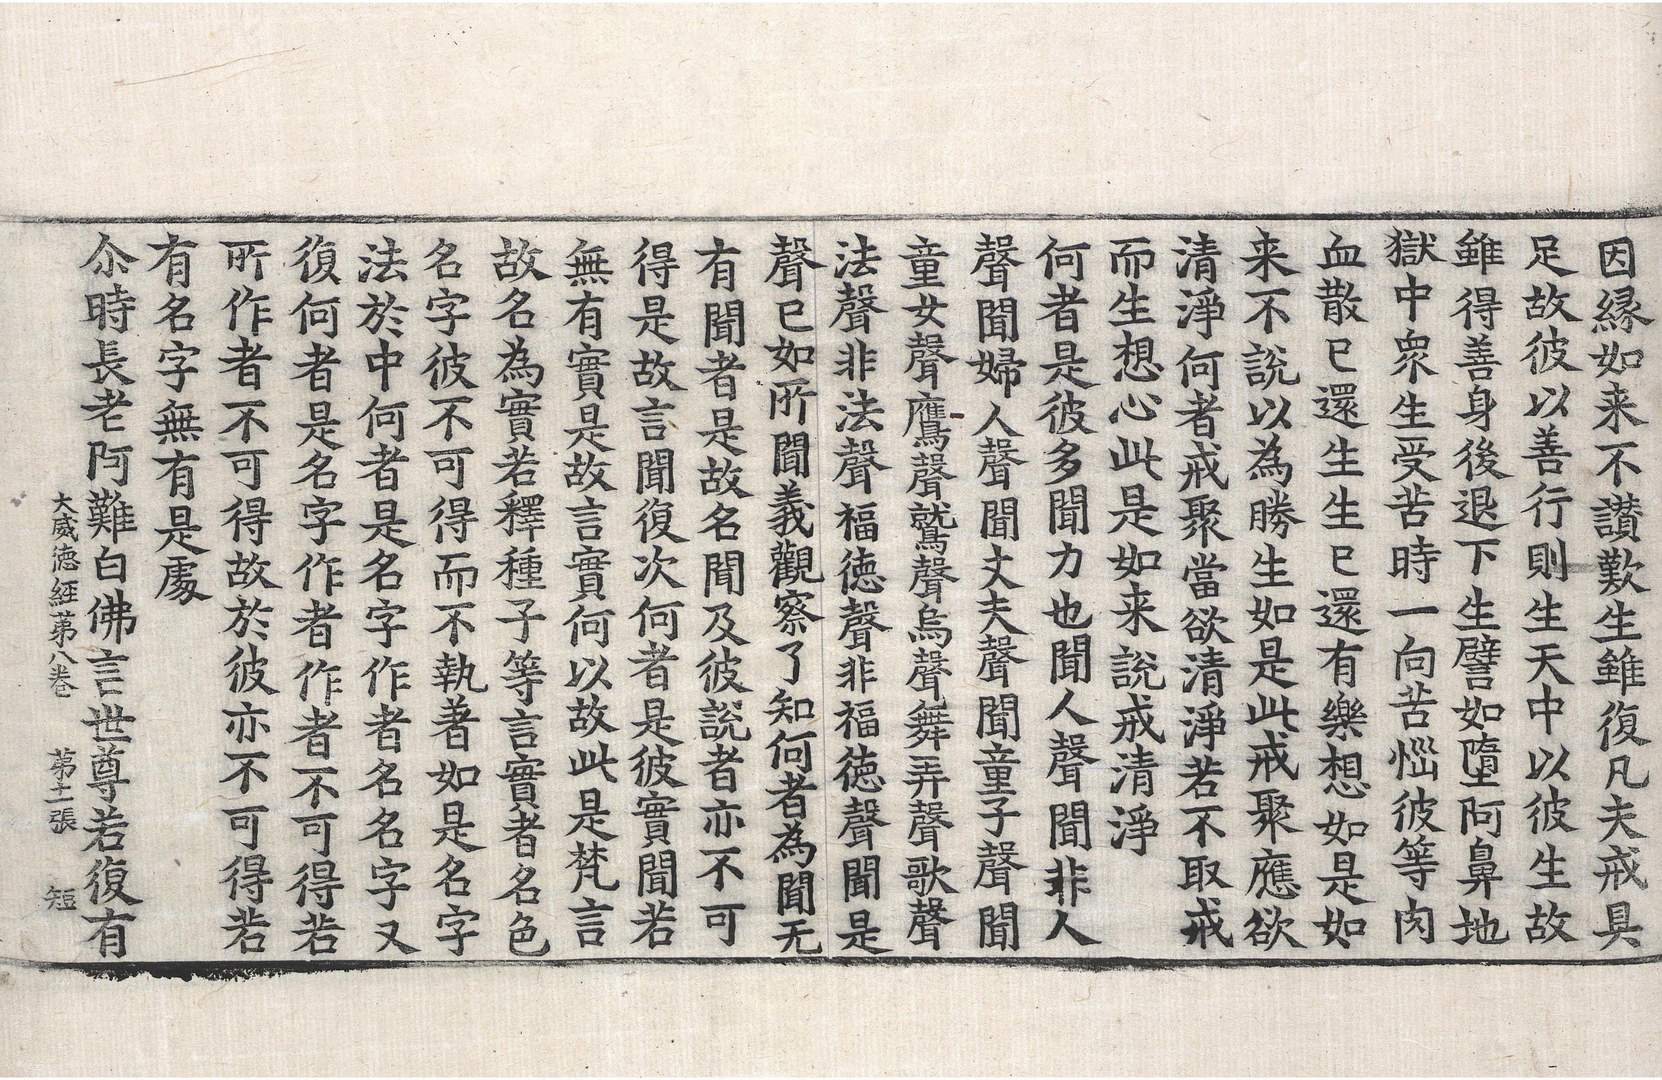 因縁如来不讃歎生雖復凡夫戒具
足故彼以善行則生天中以彼生故
雖得善身後退下生譬如墮阿鼻地
獄中衆生受苦時一向苦惱彼等肉
血散已還生生已還有樂想如是如
来不說以為勝生如是此戒聚應欲
清淨何者戒聚當欲清淨若不取戒
而生想心此是如来說戒清淨
何者是彼多聞力也聞人聲聞非人
聲聞婦人聲聞丈夫聲聞童子聲聞
童女聲鷹聲鷲聲烏聲舞弄聲歌聲
法聲非法聲福徳聲非福徳聲聞是
聲已如所聞義觀察了知何者為聞无
有聞者是故名聞及彼說者亦不可
得是故言聞復次何者是彼實聞若
無有實是故言實何以故此是梵言
故名為實若釋種子等言實者名色
名字彼不可得而不執著如是名字
法於中何者是名字作者名名字又
復何者是名字作者作者不可得若
所作者不可得故於彼亦不可得若
有名字無有是處
尒時長老阿難白佛言世尊若復有
大威徳経苐八巻 苐十一張 短